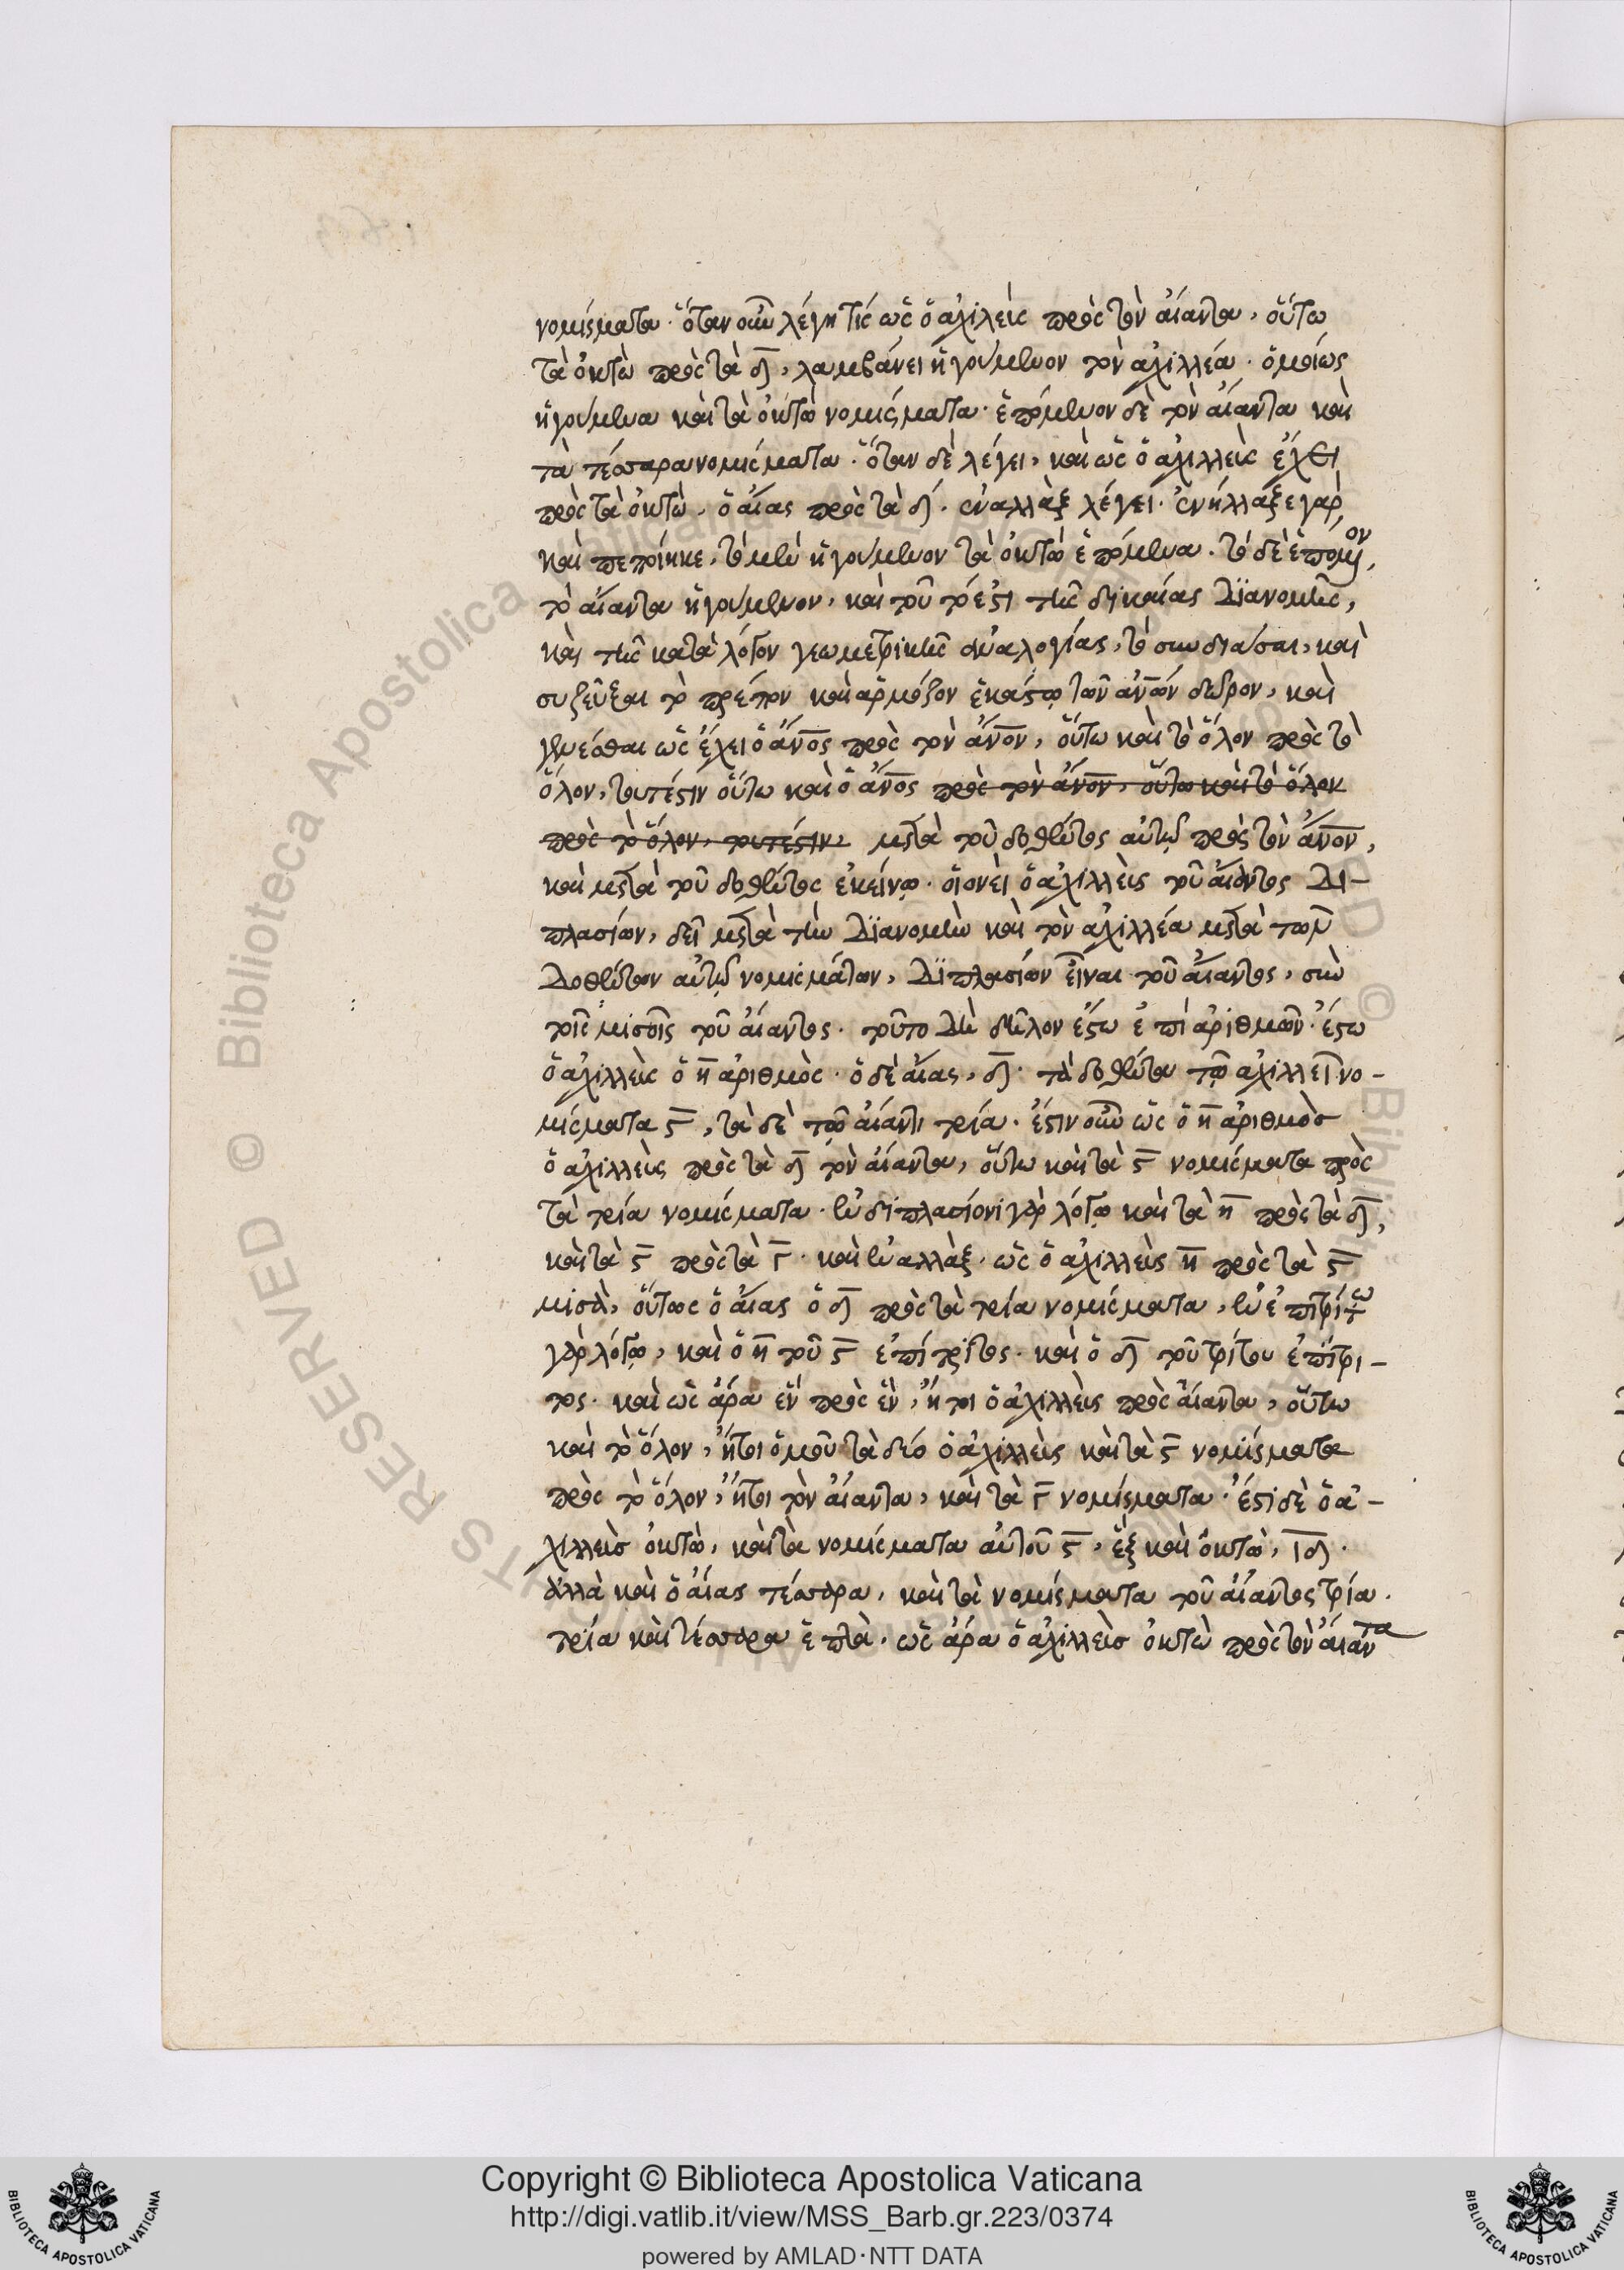 νομίσματα· ὅταν οὖν λέγη τίς ὡς ὁ ἀχιλεὺς πρὸς τὸν αἴαντα, οὕτω
τὰ ὀκτὼ πρὸς τὰ δ̅, λαμβάνει ἡγούμενον τὸν ἀχιλλέα· ὁμοίως
ἡγούμενα καὶ τὰ ὀκτὼ νομίσματα· ἑπόμενον δὲ τὸν αἴαντα καὶ
τὰ τέσσαρα νομίσματα· ὅταν δὲ λέγει, καὶ ὡς ὁ ἀχιλλεὺς ἔχει
πρὸς τὰ ὀκτὼ, ὁ αἴας πρὸς τὰ δ̅, ἐναλλὰξ λέγει· ἐνήλλαξε γὰρ
καὶ πεποίηκε, τὸ μὲν ἡγούμενον τὰ ὀκτὼ ἑπόμενα· τὸ δὲ ἑπόμενον,
τὸ αἴαντα ἡγούμενον, καὶ τοῦ τό ἐστι τῆς δικαίας διανομῆς,
καὶ τῆς κατὰ λόγον γεωμετρικῆς ἀναλογίας, τὸ συνδιάσαι, καὶ
συζεῦξαι τὸ πρέπον καὶ ἁρμόζον ἑκάστῳ τῶν ἀν̅ων δῶρον, καὶ
γενέσθαι ὡς ἔχει ὁ ἄν̅ος πρὸς τὸν ἄν̅ον, οὕτω καὶ τὸ ὅλον πρὸς τὸ
ὅλον, τουτέστιν οὕτω καὶ ὁ ἄν̅ος πρὸς τὸν ἄν̅ον, οὕτω καὶ τὸ ὅλον
πρὸς τὸ ὅλον, τουτέστιν, μετὰ τοῦ δοθέντος αὐτῷ πρὸς τὸν ἄν̅ον,
καὶ μετὰ τοῦ δοθέντος ἐκείνῳ· οἱονεὶ ὁ ἀχιλλεὺς τοῦ αἴαντος δι-
πλασίων, δεῖ μετὰ τὴν διανομὴν καὶ τὸν ἀχιλλέα μετὰ τῶν
δοθέντων αὐτῷ νομισμάτων, διπλασίων εἶναι τοῦ αἴαντος, σὺν
τοῖς μισθοῖς τοῦ αἴαντος· τοῦτο δὲ δῆλον ἔστω ἐπὶ ἀριθμῶν· ἔστω
ὁ ἀχιλλεὺς ὁ η̅ ἀριθμὸς· ὁ δὲ αἴας, δ̅· τὰ δοθέντα τῷ ἀχιλλεῖ νο-
μίσματα ϛ̅, τὰ δὲ τῷ αἴαντι τρία· ἔστιν οὖν ὡς ὁ η̅ ἀριθμὸσ
ὁ ἀχιλλεὺς πρὸς τὰ δ̅ τὸν αἴαντα, οὕτω καὶ τὰ ϛ̅ νομίσματα πρὸς
τὰ τρία νομίσματα· ἐν διπλασίονι γὰρ λόγῳ καὶ τὰ η̅ πρὸς τὰ δ̅,
καὶ τὰ ϛ̅ πρὸς τὰ γ̅· καὶ ἐναλλὰξ· ὡς ὁ ἀχιλλεὺς η̅ πρὸς τὰ ϛ̅
μισθὰ, οὕτως ὁ αἴας ὁ δ̅ πρὸς τὰ τρία νομίσματα, ἐν ἐπιτρίτω
γὰρ λόγῳ, καὶ ὁ η̅ τοῦ ϛ̅ ἐπίτριτος· καὶ ὁ δ̅ τοῦ τρίτου ἐπίτρι-
τος· καὶ ὡς ἄρα ἓν πρὸς ἓν, ἤτοι ὁ ἀχιλλεὺς πρὸς αἴαντα, οὕτω
καὶ τὸ ὅλον, ἤτοι ὁμοῦ τὰ δύο ὁ ἀχιλλεὺς καὶ τὰ ϛ̅ νομίσματα
πρὸς τὸ ὅλον, ἤτοι τὸν αἴαντα, καὶ τὰ γ̅ νομίσματα· ἔστι δὲ ὁ ἀ-
χιλλεὺσ ὀκτὼ, καὶ τὰ νομίσματα αὐτοῦ ϛ̅, ἓξ καὶ ὀκτὼ, ιδ̅·
ἀλλὰ καὶ ὁ αἴας τέσσαρα, καὶ τὰ νομίσματα τοῦ αἴαντος τρία·
τρία καὶ τέσσαρα ἑπτὰ· ὡς ἄρα ὁ ἀχιλλεὺσ ὀκτὼ πρὸς τὸν αἴαντα
Copyright © Biblioteca Apostolica Vaticana
http://digi.vatlib.it/view/MSS_Barb.gr.223/0374
powered by AMLAD·NTT DATA